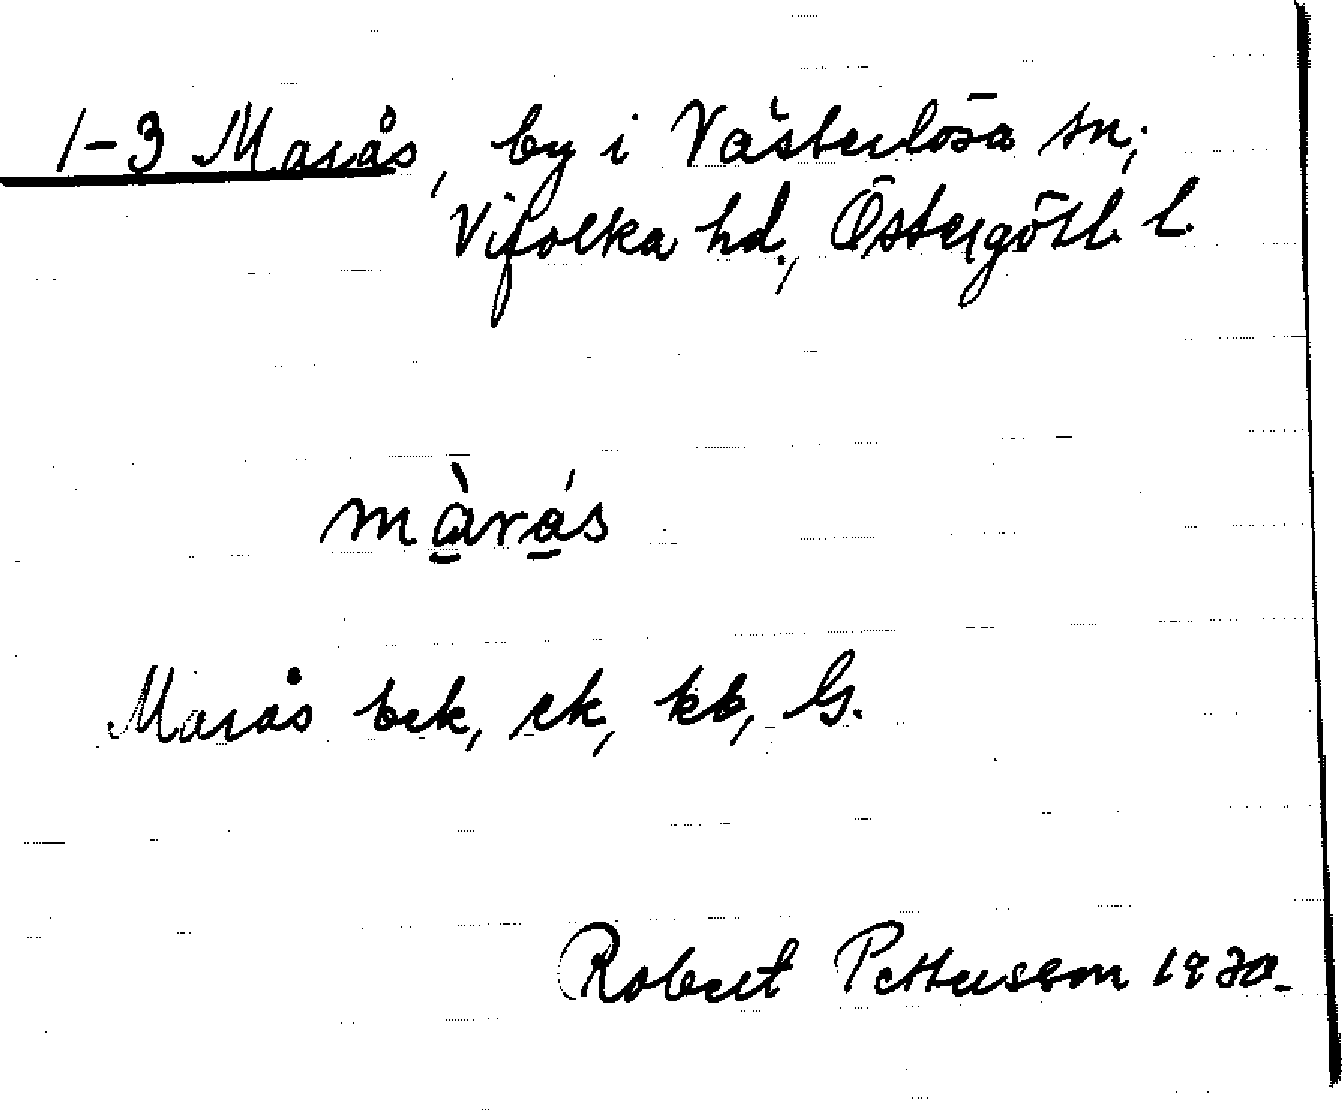 1-3 Marås, by i Västerlösa sn,
Vifolka hd., Östergötl. l.
màrás
Marås bek, ek, kb, G.
Robert Pettersson 1930.